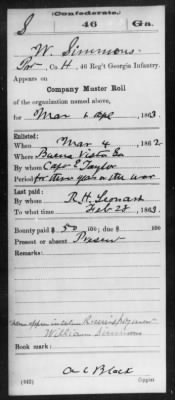 (Confederate.)
S 46 Ga.
W. Simmons
Pvt, Co. H, 46 Reg't Georgia Infantry.
Appears on
Company Muster Roll
of the organization named above,
for Mar & Apl, 1863.
Enlisted:
When Mar 4, 1862
Where Buena Vista Ga
By whom Capt E Taylor
Period for three years or the war
Last paid:
By whom R. H. Leonard
To what time Feb 28, 1863.
Bounty paid $ 50 /100; due $ /100
Present or absent Present
Remarks:
Name appears in column
William Simmons
Book mark:
(642)
Copyist.